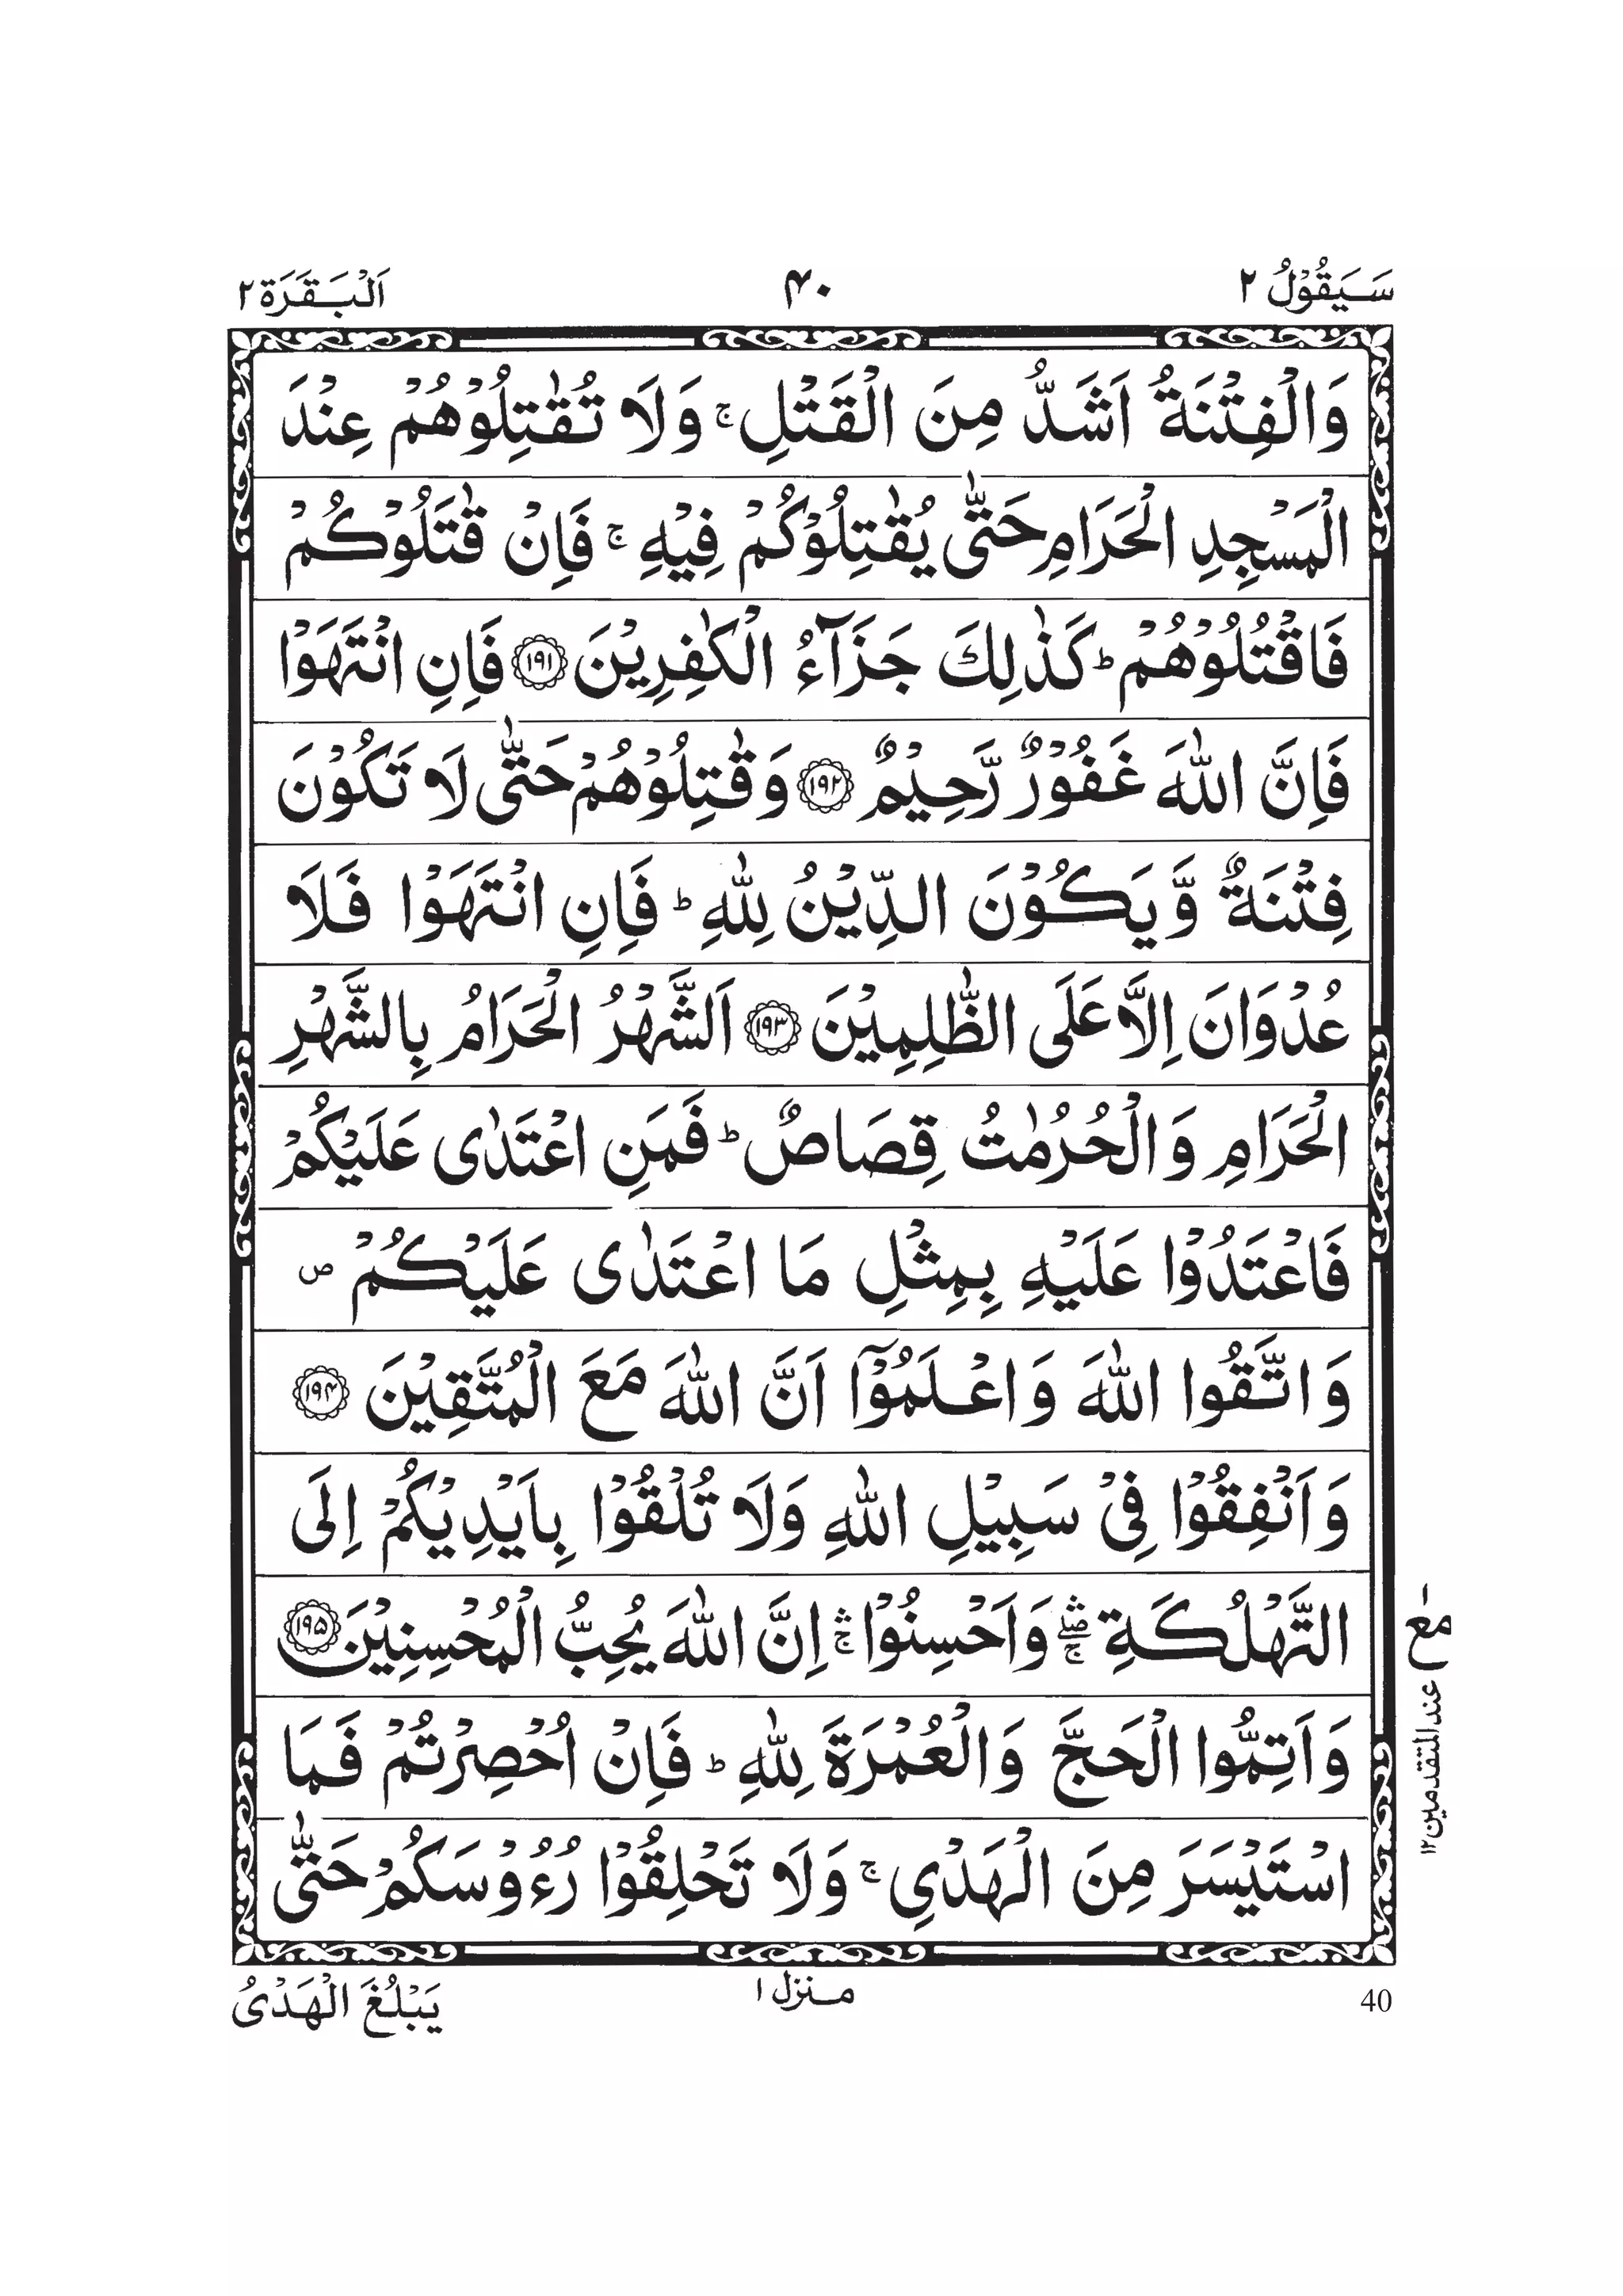 سَيَقُوْلُ ٢ ۴۰ اَلْبَقَرَة ٢
وَالْفِتْنَةُ اَشَدُّ مِنَ الْقَتْلِ ۚ وَلَا تُقٰتِلُوْهُمْ عِنْدَ
الْمَسْجِدِ الْحَرَامِ حَتّٰى يُقٰتِلُوْكُمْ فِيْهِ ۚ فَاِنْ قٰتَلُوْكُمْ
فَاقْتُلُوْهُمْ ؕ كَذٰلِكَ جَزَآءُ الْكٰفِرِيْنَ ۝۱۹۱ فَاِنِ انْتَهَوْا
فَاِنَّ اللّٰهَ غَفُوْرٌ رَّحِيْمٌ ۝۱۹۲ وَقٰتِلُوْهُمْ حَتّٰى لَا تَكُوْنَ
فِتْنَةٌ وَّيَكُوْنَ الدِّيْنُ لِلّٰهِ ؕ فَاِنِ انْتَهَوْا فَلَا
عُدْوَانَ اِلَّا عَلَى الظّٰلِمِيْنَ ۝۱۹۳ اَلشَّهْرُ الْحَرَامُ بِالشَّهْرِ
الْحَرَامِ وَالْحُرُمٰتُ قِصَاصٌ ؕ فَمَنِ اعْتَدٰى عَلَيْكُمْ
فَاعْتَدُوْا عَلَيْهِ بِمِثْلِ مَا اعْتَدٰى عَلَيْكُمْ ص
وَاتَّقُوا اللّٰهَ وَاعْلَمُوْٓا اَنَّ اللّٰهَ مَعَ الْمُتَّقِيْنَ ۝۱۹۴
وَاَنْفِقُوْا فِيْ سَبِيْلِ اللّٰهِ وَلَا تُلْقُوْا بِاَيْدِيْكُمْ اِلَى
التَّهْلُكَةِ ۛۖۚ وَاَحْسِنُوْا ۛۚ اِنَّ اللّٰهَ يُحِبُّ الْمُحْسِنِيْنَ ۝۱۹۵
وَاَتِمُّوا الْحَجَّ وَالْعُمْرَةَ لِلّٰهِ ؕ فَاِنْ اُحْصِرْتُمْ فَمَا
اسْتَيْسَرَ مِنَ الْهَدْيِ ۚ وَلَا تَحْلِقُوْا رُءُوْسَكُمْ حَتّٰى
مع
عند المتقدمين ١٢
40 منزل ١ يَبْلُغَ الْهَدْىُ